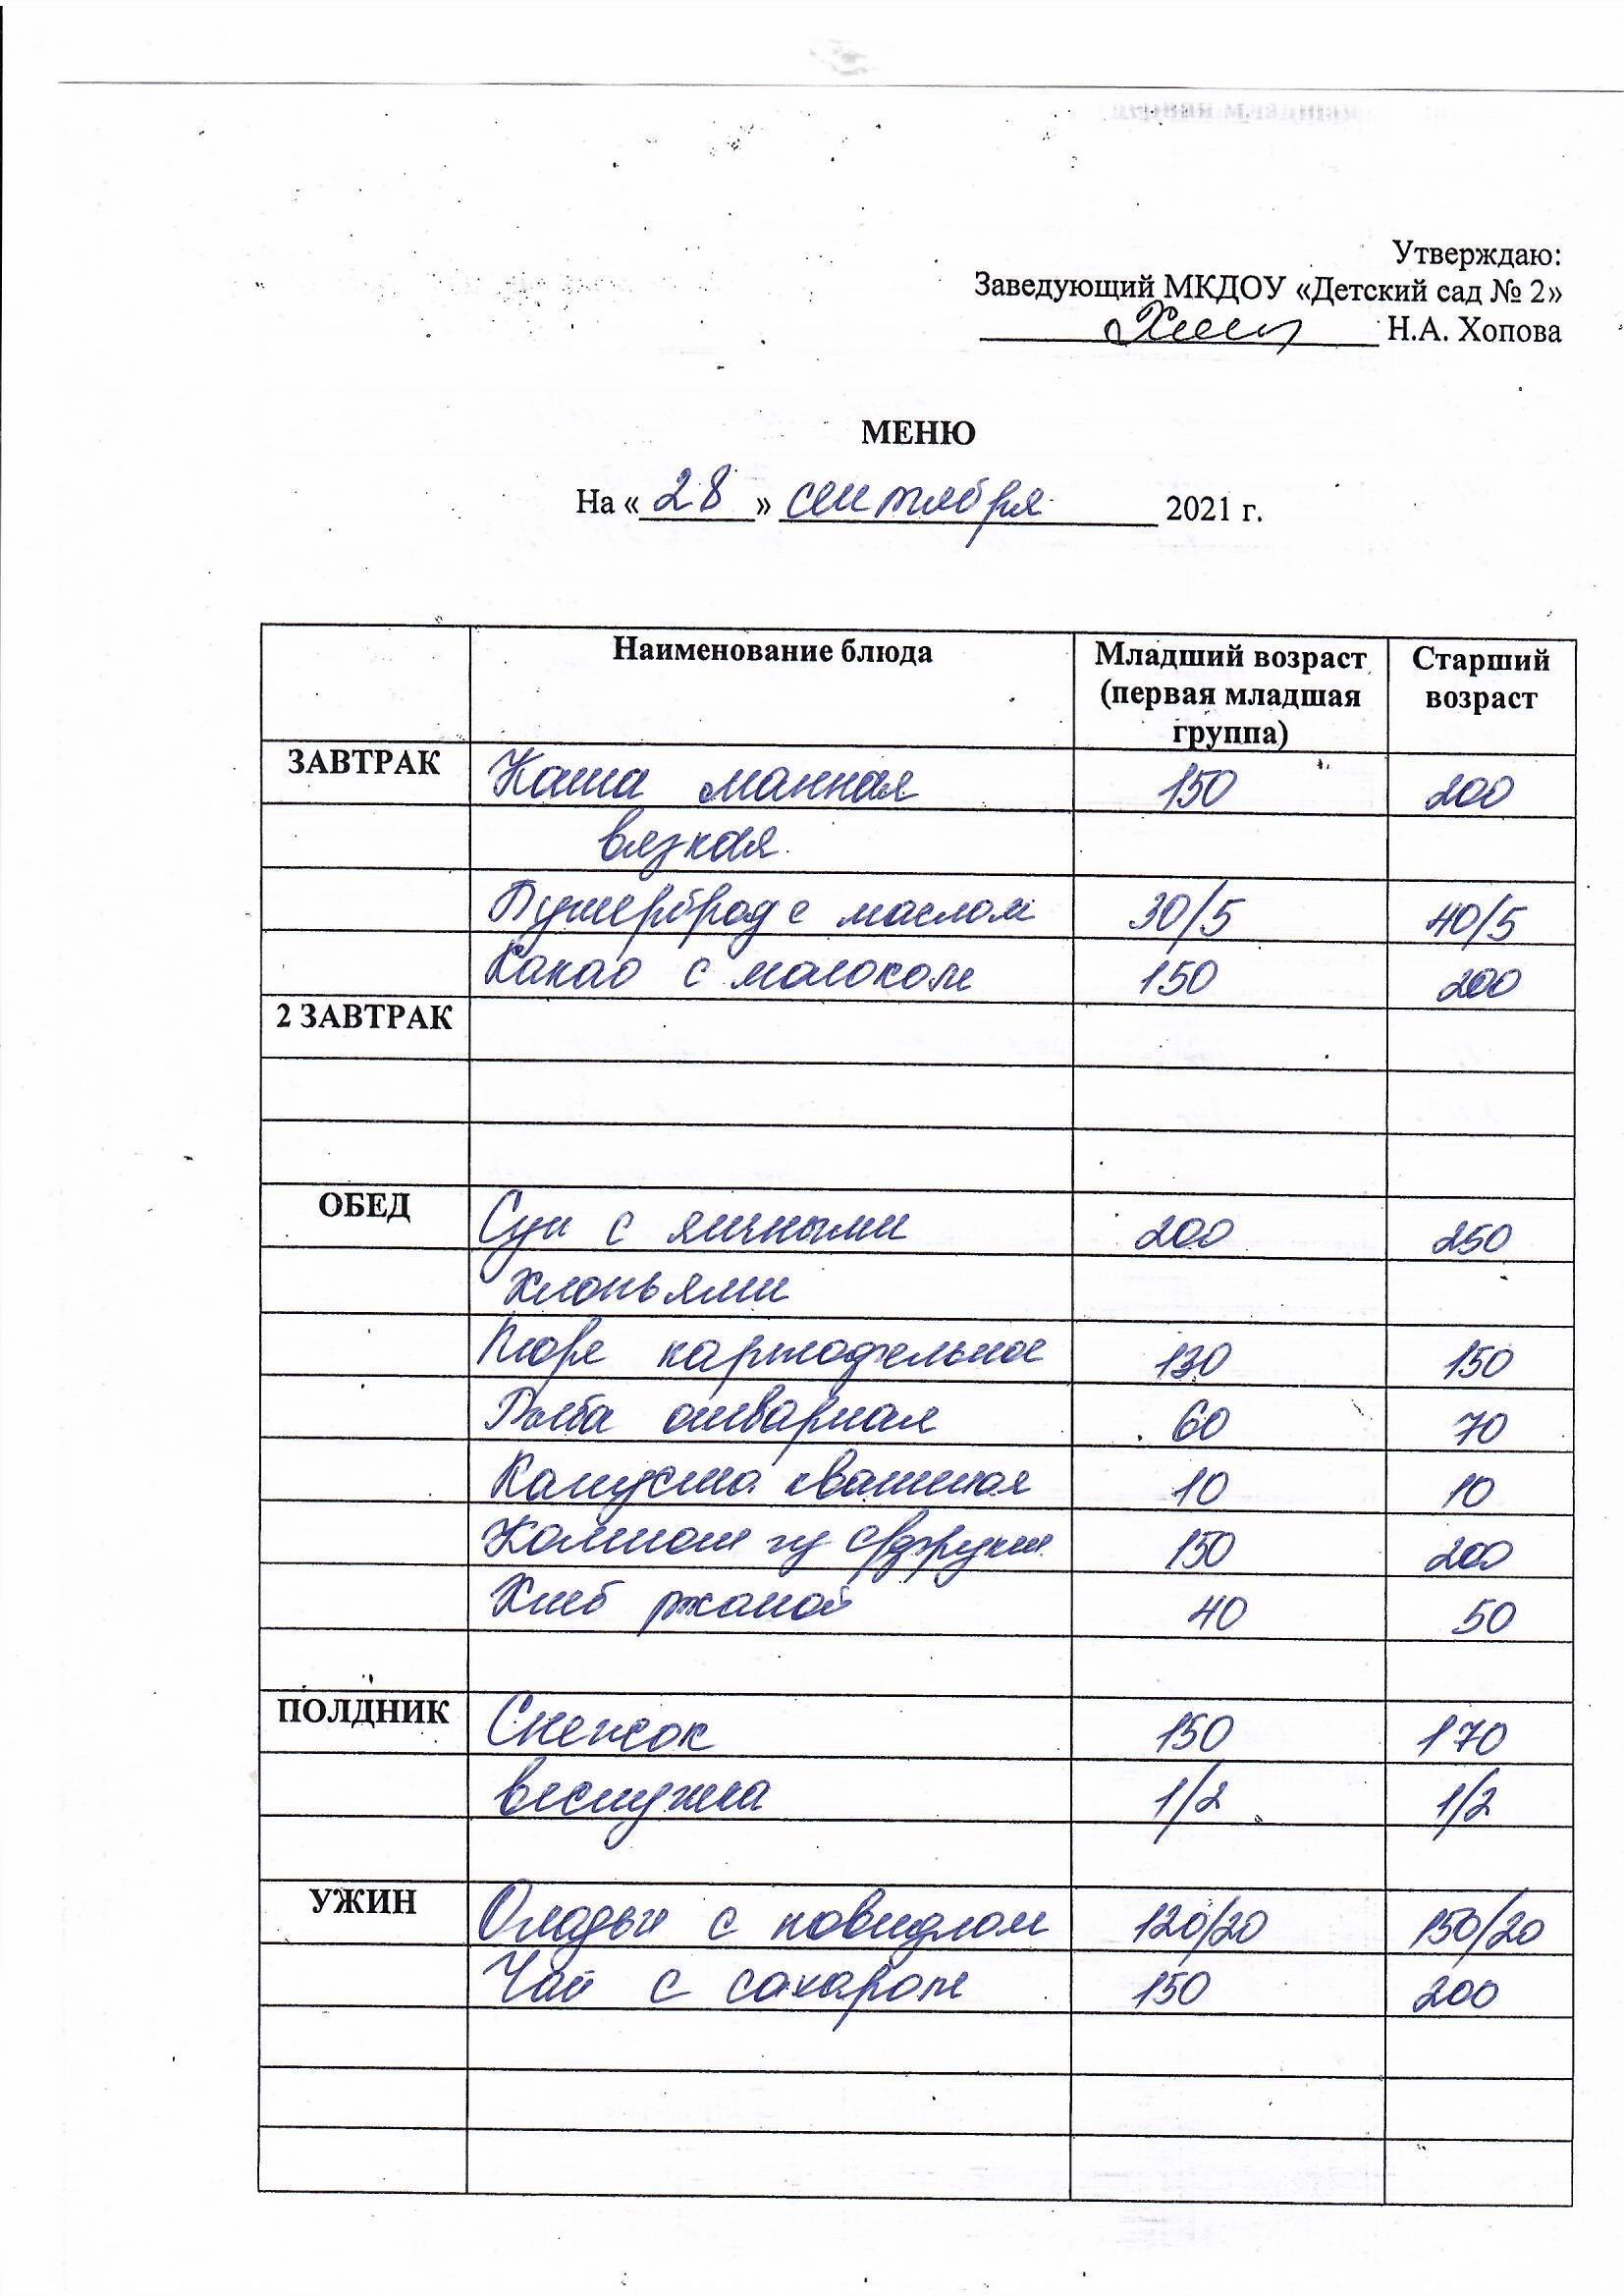 Утверждаю:
Заведующий МКДОУ «Детский сад № 2»
Н.А. Хопова
МЕНЮ
На « 28 » сентября 2021 г.
Наименование блюда Младший возраст (первая младшая группа) Старший возраст
ЗАВТРАК Каша манная 150 200
вязкая
Бутерброд с маслом 30/5 40/5
Какао с молоком 150 200
2 ЗАВТРАК
ОБЕД Суп с яичными 200 250
хлопьями
Пюре картофельное 130 150
Рыба отварная 60 70
Капуста квашеная 10 10
Компот из с/фрукт. 150 200
Хлеб ржаной 40 50
ПОЛДНИК Снежок 150 170
1/2 1/2
УЖИН Оладьи с повидлом 120/20 150/20
Чай с сахаром 150 200